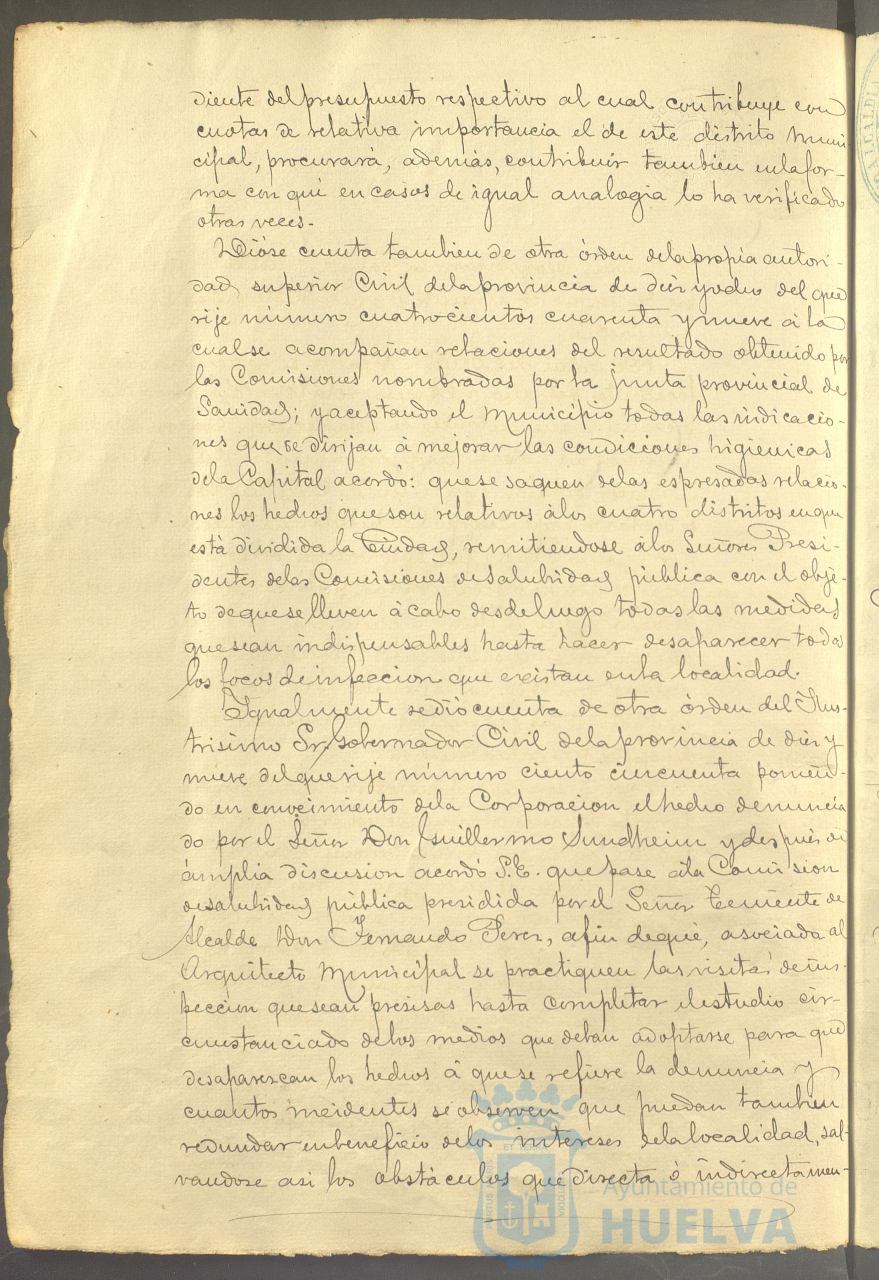 diente del presupuesto respectivo al cual contribuye con
cuotas de relativa importancia el de este distrito Muni-
cipal, procurará, además, contribuir tambien en la for-
ma con que en casos de igual analogia lo ha verificado
otras veces.-
Dióse cuenta tambien de otra órden de la propia autori-
dad superior Civil de la provincia de diez y ocho del que
rije número cuatrocientos cuarenta y nueve á la
cual se acompañan relaciones del resultado obtenido por
las Comisiones nombradas por la junta provincial de
Sanidad; y aceptando el municipio todas las indicacio-
nes que se dirijan á mejorar las condiciones higienicas
de la Capital acordó: que se saquen de las espresadas relacio-
nes los hechos que son relativos á los cuatro distritos en que
está dividida la Ciudad, remitiendose á los Señores Presi-
dentes de las Comisiones de salubridad pública con el obje-
to de que se lleven á cabo desde luego todas las medidas
que sean indispensables hasta hacer desaparecer todos
los focos de infeccion que existan en la localidad.
Igualmente se dió cuenta de otra órden del Ilus-
trisimo Sr. Gobernador Civil de la provincia de diez y
nueve del que rije número ciento cincuenta ponien-
do en conocimiento de la Corporacion el hecho denuncia
do por el Señor Don Guillermo Sundheim y despues de
ámplia discusion acordó S.E. que pase á la Comision
de salubridad pública presidida por el Señor Teniente de
Alcalde Don Fernando Perez, a fin de que, asociada al
Arquitecto Municipal se practiquen las visitas de ins-
peccion que sean presisas hasta completar el estudio cir-
cunstanciado de los medios que deban adoptarse para que
desaparezcan los hechos á que se refiere la denuncia y
cuantos incidentes se observen que puedan tambien
redundar en beneficio de los intereses de la localidad, sal-
vandose asi los obstáculos que directa ó indirectamen-
Ayuntamiento de
HUELVA